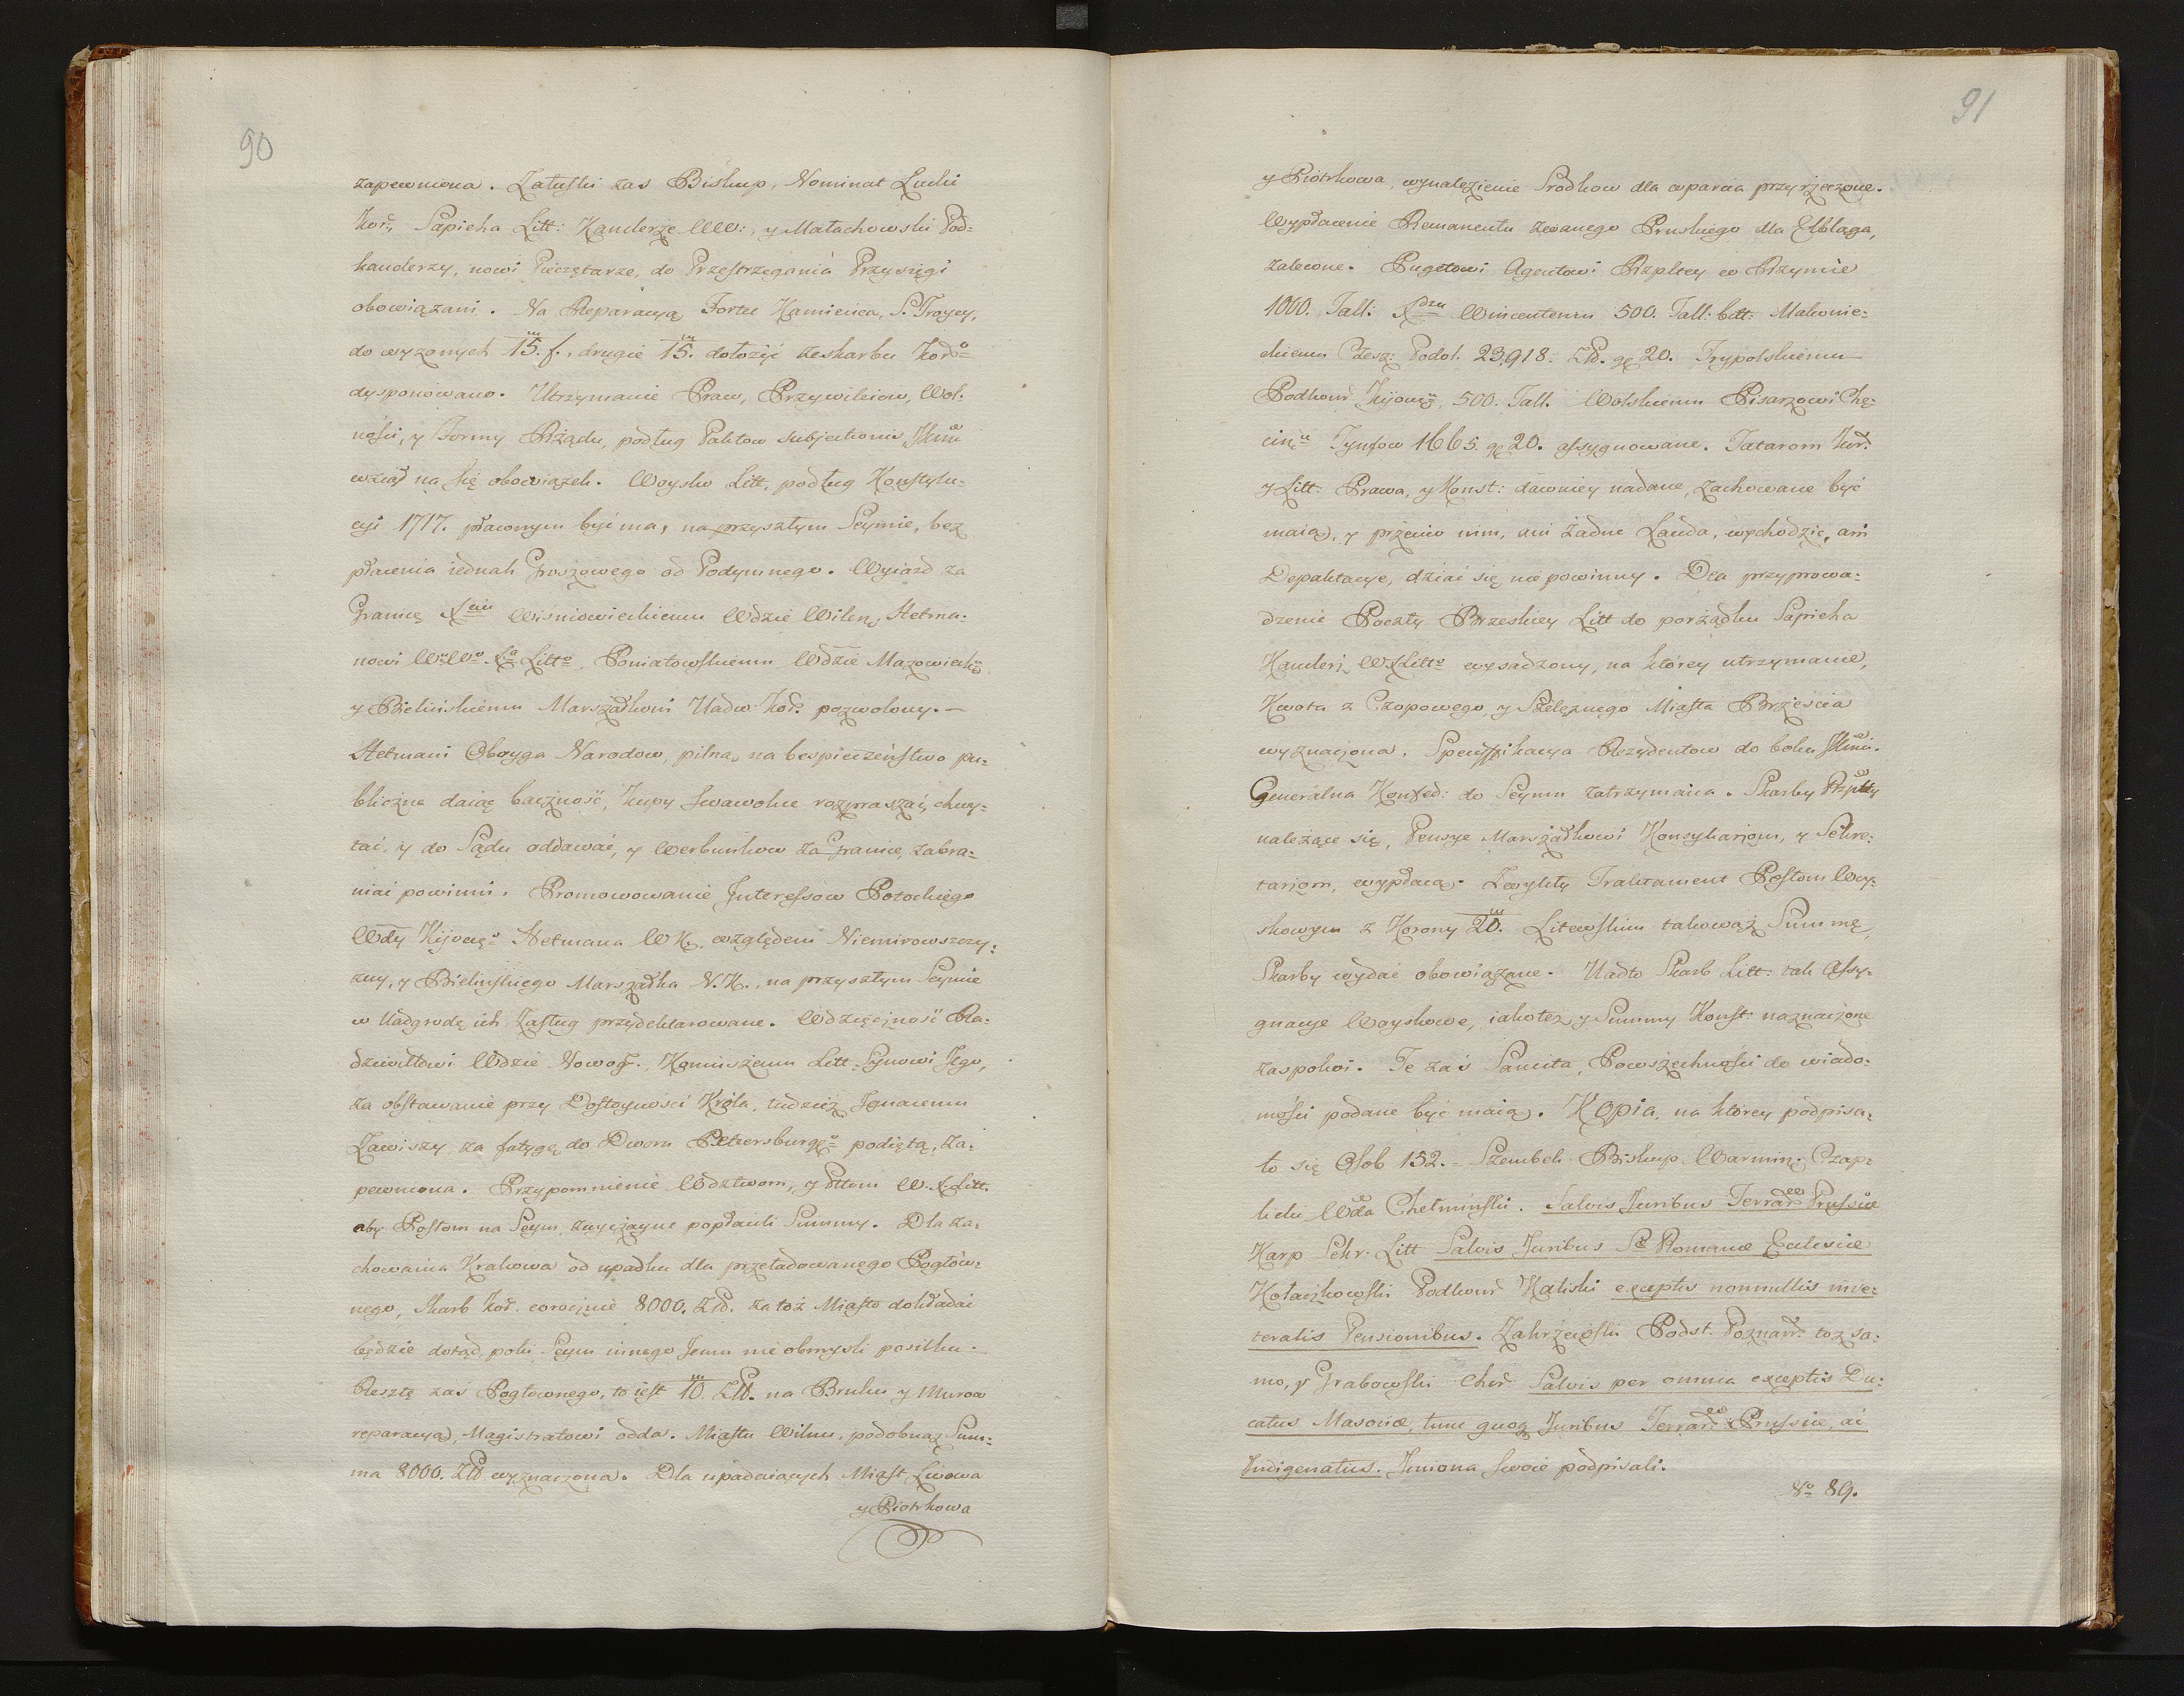 90
zapewniona. Załuski zas Biskup, Nominat Lucki
Kor:, Sapieha Litt: Kanclerze WW:, y Małachowski Pod=
kanclerzy, nowi Pieczętarze, do Przestrzegania Przysięgi
obowiązani. Na Reparacyą Fortec Kamieńca, S. Troycy,
do wyzonych 15.m f., drugie 15.m dołożyć zeskarbu Koro
dysponowano. Utrzymanie Praw, Przywileiow, Wol=
ności, y Formy Rządu, podług Paktow subjectionis,
wziął na się obowiązek. Woysko Litt, podług Konstytu=
cyi 1717. płaconym być ma, na przyszłym Seymie, bez
płacenia iednak Groszowego od Podymnego. Wyiazd za
Granicę Xciu Wiśniowieckiemu Wdzie Wileń, Hetma=
nowi WoWo. Xa Litto, Poniatowskiemu Wdzie Mazowiecko
y Bielińskiemu Marszałkowi Nadw: Kor. pozwolony.—
Hetmani Oboyga Narodow, pilną, na bespieczeństwo pu=
bliczne daiąc baczność, Kupy swawolne rozpraszać, chwy=
tać, y do Sądu oddawać, y werbunkow za Granicę, zabra=
niać powinni. Promowowanie Interessow Potockiego
Wdy Kijowgo Hetmana WK., względem Niemirowszczy=
zny, y Bielinskiego Marszałka N.K., na przyszłym Seymie
w Nadgrodę ich Zasług przydeklarowane. Wdzięczność Ra=
dziwiłłowi Wdzie Nowog., Koniuszemu Litt: Synowi Jego,
za obstawanie przy Dostoyności Króla, tudzież Ignacemu
Zawiszy, za fatygę do Dworu Petersburgo podiętą, za=
pewniona. Przypomnienie Wdztwom, y Pttom W.X.Litt.
aby Posłom na Seym, zwyczayne popłacili Summy. Dla za=
chowania Krakowa od upadku dla przeładowanego Pogłów=
nego, Skarb Kor. corocznie 8000. Złd. za toż Miasto dokładać
będzie dotąd, poki Seym innego Jemu nie obmyśli posiłku.
Resztę zaś Pogłownego, to iest 10.m Złł. na Bruku y Murow
reparacyą, Magistratowi odda. Miastu Wilnu, podobnaż Sum=
ma 8000. Złł wyznaczona. Dla upadaiących Miast Lwowa
y Piotrkowa
91
y Piotrkowa, wynalezienie Srodkow dla wparcia przyrzeczone.
Wypłacenie Remanentu zwanego Pruskiego dla Elbląga,
zalecone. Pugetowi Agentowi Rzpltey w Rzymie
1000. Tall: Xdzu Wincentemu 500. Tall: bitt: Makowie=
ckiemu Czesz: Podol. 23,918. Złł. gr 20. Trypolskiemu
Podkom Kijowu, 500. Tall. Wolskiemu Pisarzowi Chę=
cinu Tynfow 1665. gr 20. assygnowane. Tatarom Kor.
y Litt: Prawa, y Konst: dawniey nadane, zachowane być
maią, y przeciw nim, ani żadne Lauda, wychodzic, ani
Depaktacye, dziać się nie powinny. Dla przyprowa=
dzenie Poczty Brzeskiey Litt do porządku Sapieha
Kanclerz WXLitto wysadzony, na którey utrzymanie,
Kwota z Czopowego, y Szelężnego Miasta Brześcia
wyznaczona. Specyfikacya Rezydentow do boku
Generalna Konfed: do Seymu zatrzymana. Skarby Rzpltey
należące się, Pensye Marszałkowi Konsyliarzom, y Sekre=
tarzom, wypłacą. Zwykły Traktament Posłom Woy=
skowym z Korony 20.m Litewskim takowąż Summę,
Skarby wydać obowiązane. Nadto Skarb Litt: tak Assy=
gnacye Woyskowe, iakoteż y Summy Konst: naznaczone
zaspokoi. Te zaś Sancita, Powszechności do wiado=
mości podane być maią. Kopia, na którey podpisa=
to się Osob 152. = Szembek Biskup Warmiń: Czap=
licki Wda Chełmiński. Salvis Juribus Terrarum Prussiæ
Karp Sekr: Litt Salvis Juribus Sæ Romanæ Ecclesiæ
Kołaczkowski Podkom Kaliski exceptis nonnullis inve=
teratis Pensionibus. Zakrzewski Podst. Poznań toz sa=
mo, y Grabowski Chor Salvis per omnia exceptis Du=
catus Masoviæ, tum quoq Juribus Terrarum Prussiæ, ac
Indigenatus. Imiona swoie podpisali.
No 89.